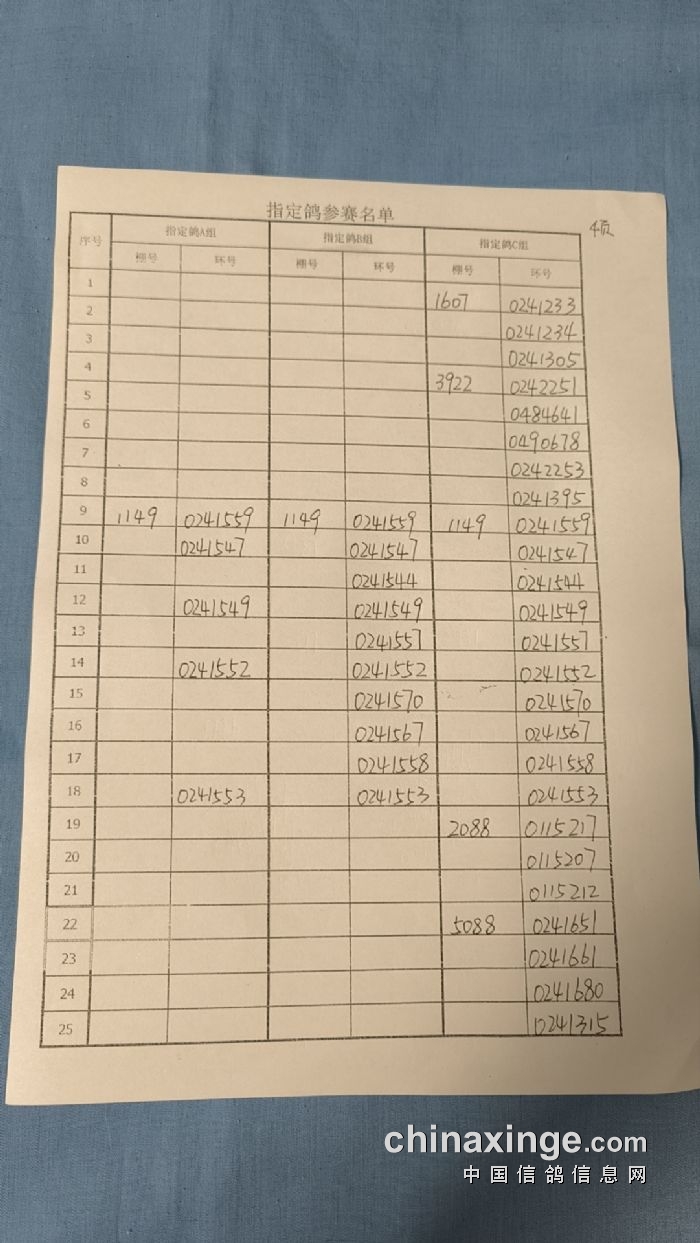 指定鸽参赛名单
4页
序号 指定鸽A组 指定鸽B组 指定鸽C组
棚号 环号 棚号 环号 棚号 环号
1 1607 0241233
2 0241234
3 0241305
4 3922 0242251
5 0484641
6 0490678
7 0242253
8 0241395
9 1149 0241559 1149 0241559 1149 0241559
10 0241547 0241547 0241547
11 0241544 0241544
12 0241549 0241549 0241549
13 0241557 0241557
14 0241552 0241552 0241552
15 0241570 0241570
16 0241567 0241567
17 0241558 0241558
18 0241553 0241553 0241553
19 2088 0115217
20 0115207
21 0115212
22 5088 0241651
23 0241661
24 0241680
25 0241315
chinaxinge.com
中国信鸽信息网